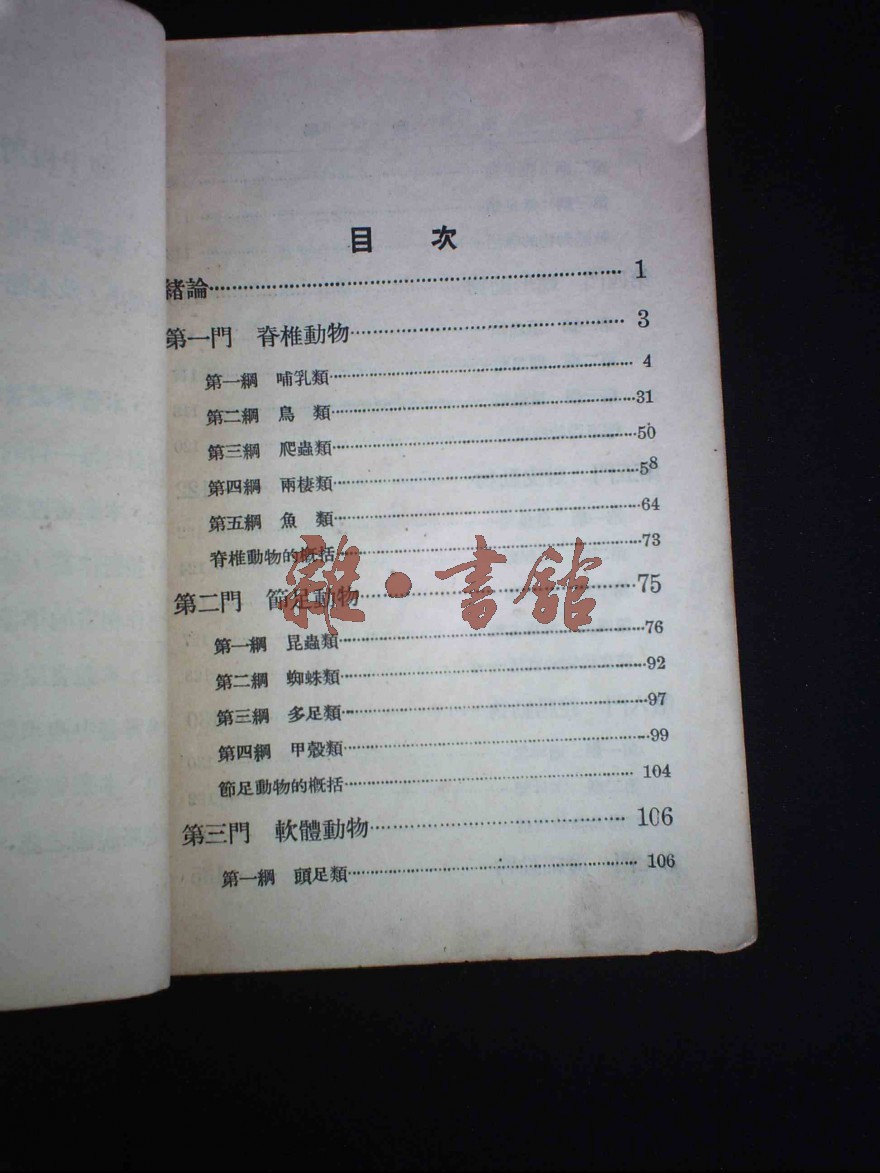 目　次
緒論…………1
第一門　脊椎動物…………3
第一綱　哺乳類…………4
第二綱　鳥　類…………31
第三綱　爬蟲類…………50
第四綱　兩棲類…………58
第五綱　魚　類…………64
脊椎動物的概括…………73
雜·書館
第二門　節足動物…………75
第一綱　昆蟲類…………76
第二綱　蜘蛛類…………92
第三綱　多足類…………97
第四綱　甲殼類…………99
節足動物的概括…………104
第三門　軟體動物…………106
第一綱　頭足類…………106